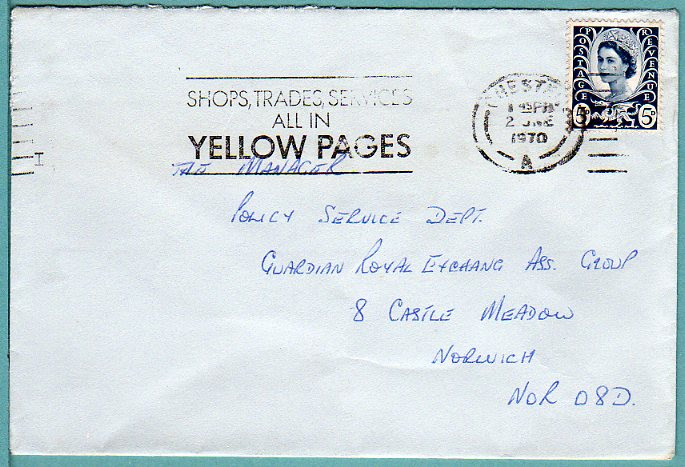 SHOPS, TRADES, SERVICES
ALL IN
YELLOW PAGES
CHESTER
2 JNE
1970
A
POSTAGE
REVENUE
5D
5D
THE MANAGER
POLICY SERVICE DEPT.
GUARDIAN ROYAL EXCHANG ASS. GROUP
8 CASTLE MEADOW
NORWICH
NOR 08D.